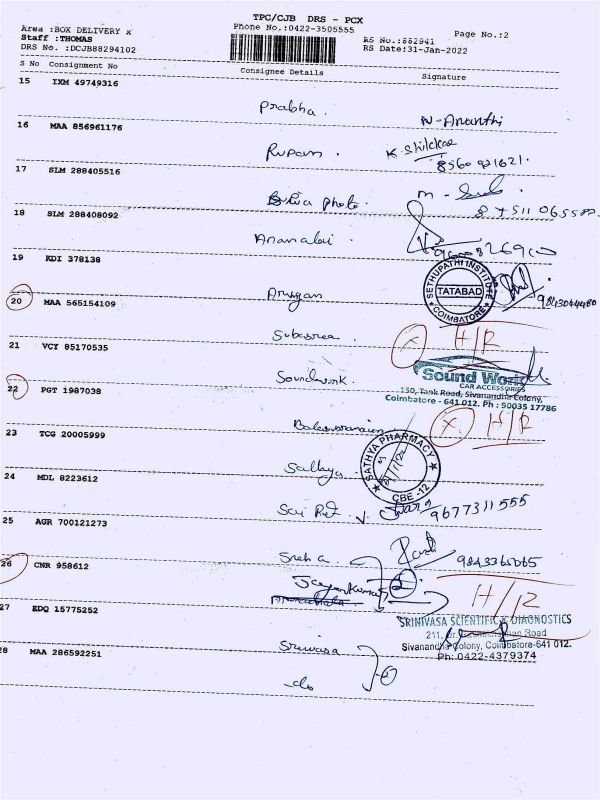 TPC/CJB DRS - PCX
Area :BOX DELIVERY x
Phone No.:0422-3505555
Page No.:2
Staff :THOMAS
RS No.:882941
DRS No. :DCJB88294102
RS Date:31-Jan-2022
S No Consignment No Consignee Details Signature
15 IXM 49749316
Prabha. N-Ananthi
16 MAA 856961176
Rupam. K.
17 SLM 288405516
photo. M-
18 SLM 288408092
Annamalai.
19 KDI 378138
SETHUPATHI INSTITUTE
TATABAD
COIMBATORE
20 MAA 565154109
H/R
21 VCY 85170535
Soundwork. Sound Work
CAR ACCESSORIES
150, Tank Road, Sivanandha Colony,
Coimbatore - 641 012. Ph : 90035 17786
22 PGT 1987038
x. H/R
23 TCG 20005999
Sathya
SATHYA PHARMACY
CBE-12
24 MDL 8223612
Sai 9677311555
25 AGR 700121273
Sneha
26 CNR 958612
Jayankumar
H/R
27 EDQ 15775252
SRINIVASA SCIENTIFIC & DIAGNOSTICS
211, Dr. Road
Srinivasa Sivanandha Colony, Coimbatore-641 012.
Ph: 0422-4379374
28 MAA 286592251
do